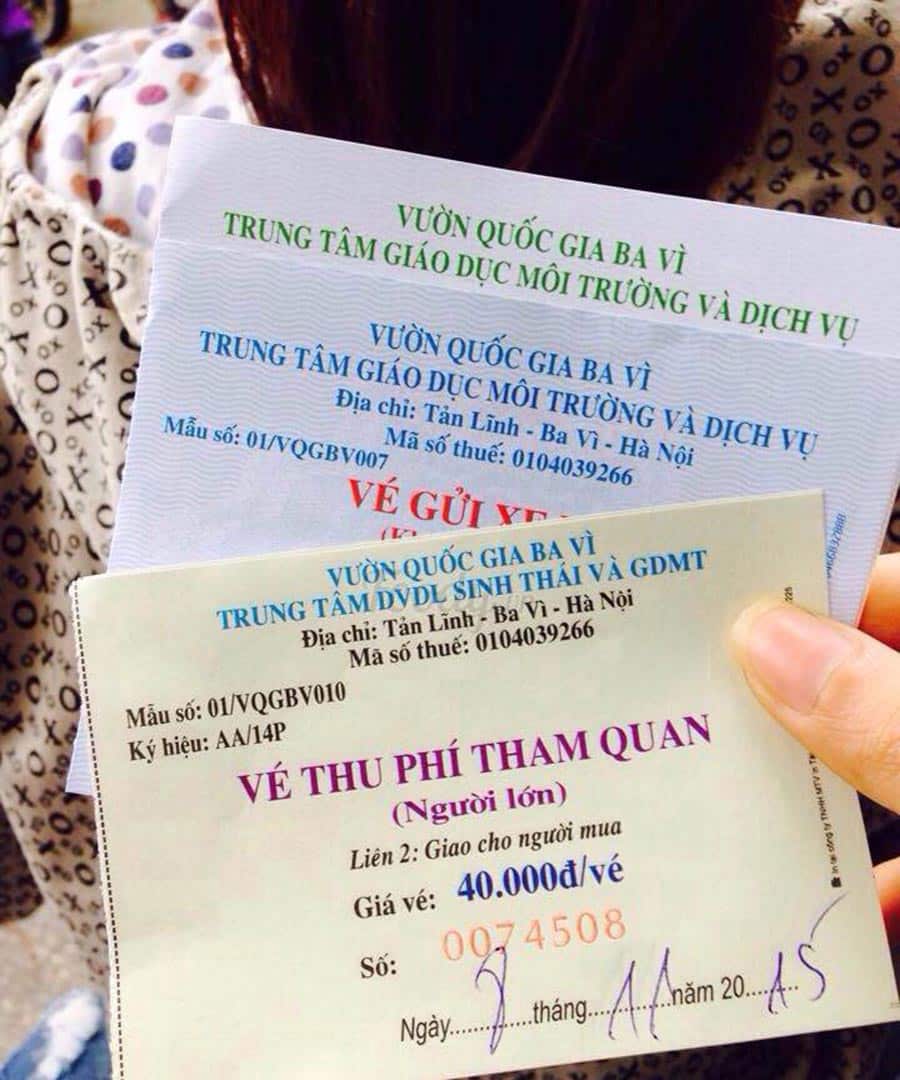 VƯỜN QUỐC GIA BA VÌ
TRUNG TÂM GIÁO DỤC MÔI TRƯỜNG VÀ DỊCH VỤ
VƯỜN QUỐC GIA BA VÌ
TRUNG TÂM GIÁO DỤC MÔI TRƯỜNG VÀ DỊCH VỤ
Địa chỉ: Tản Lĩnh - Ba Vì - Hà Nội
Mã số thuế: 0104039266
Mẫu số: 01/VQGBV007
VÉ GỬI XE
VƯỜN QUỐC GIA BA VÌ
TRUNG TÂM DVDL SINH THÁI VÀ GDMT
Địa chỉ: Tản Lĩnh - Ba Vì - Hà Nội
Mã số thuế: 0104039266
Mẫu số: 01/VQGBV010
Ký hiệu: AA/14P
VÉ THU PHÍ THAM QUAN
(Người lớn)
Liên 2: Giao cho người mua
Giá vé: 40.000đ/vé
Số: 0074508
Ngày 8 tháng 11 năm 2015
In tại công ty TNHH MTV in